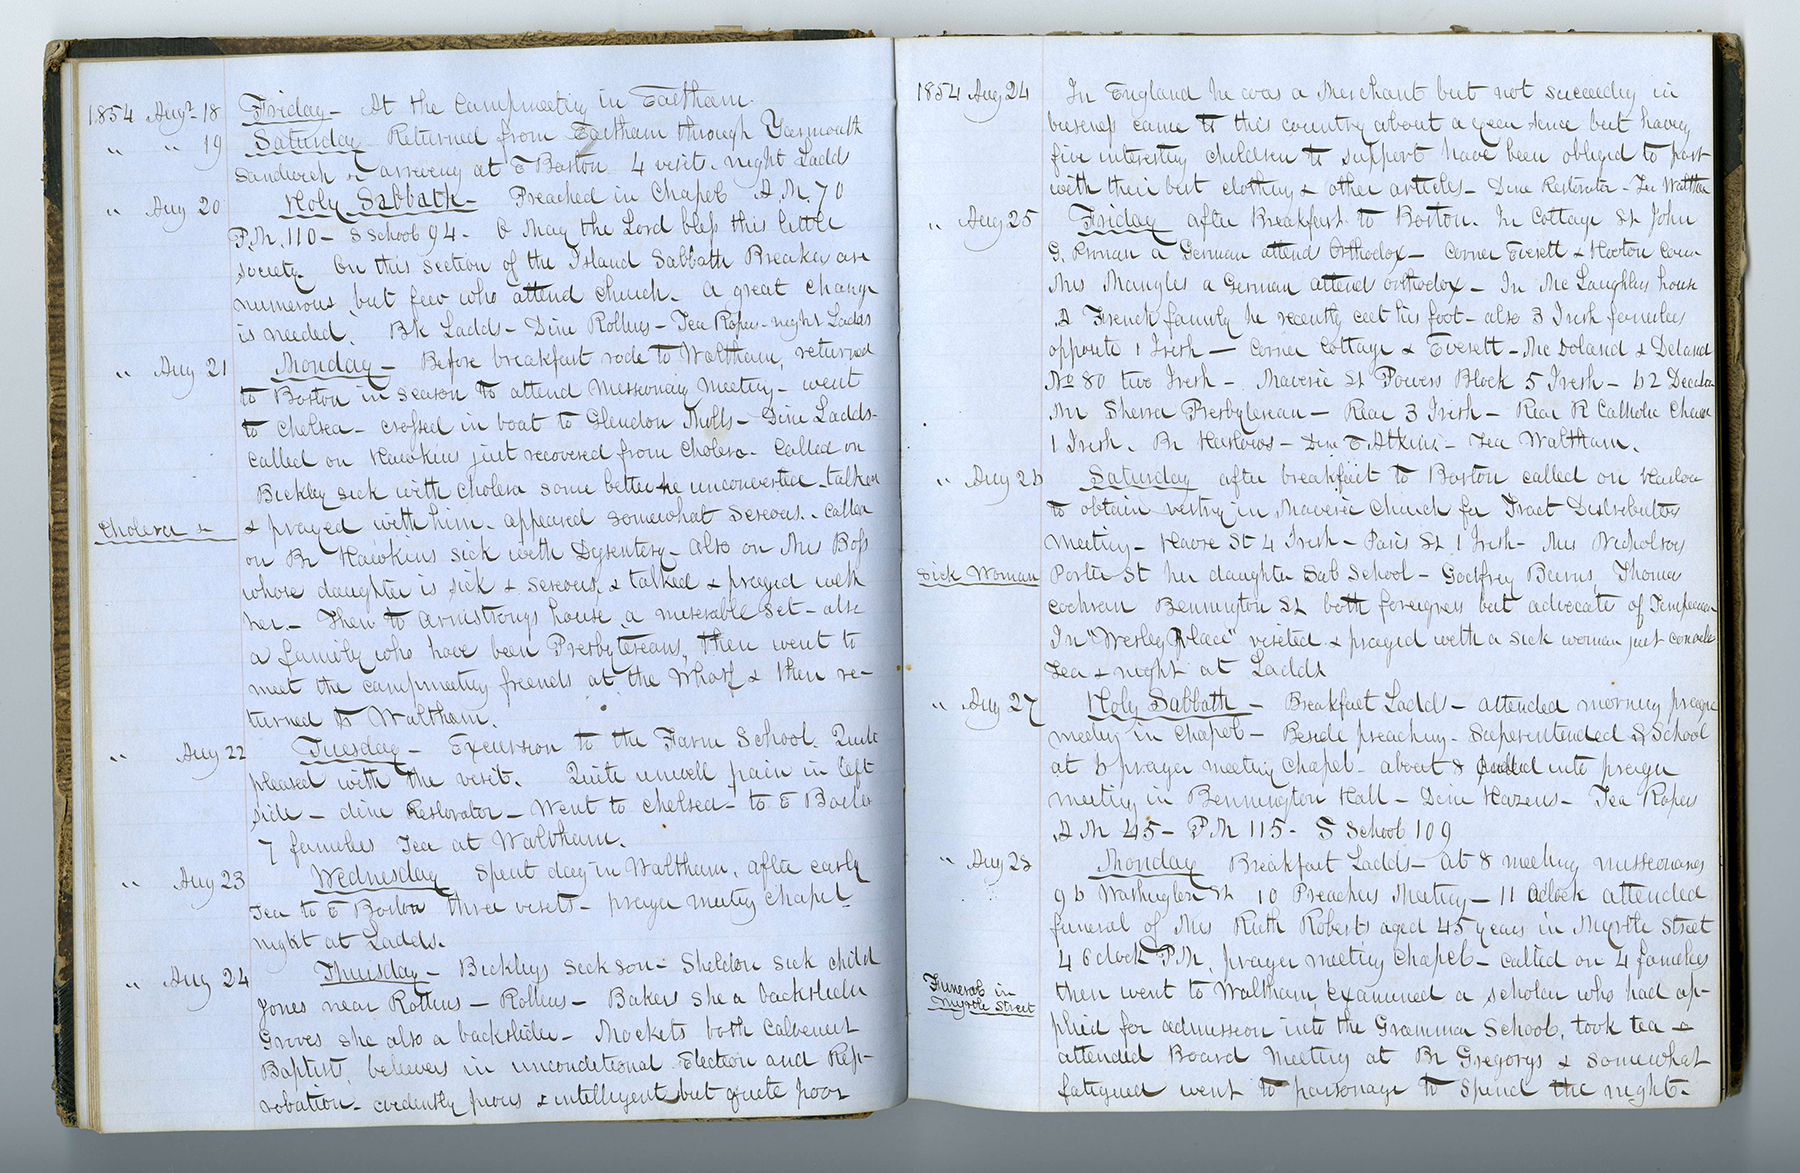 1854 Augt 18 Friday - At the Campmeeting in Eastham.
" " 19 Saturday Returned from Eastham through Yarmouth
Sandwich & arriveing at E Boston 4 visits. night Ladds
" Aug 20 Holy Sabbath - Preached in Chapel A.M. 70
P.M. 110 - S School 94 - O May the Lord bless this little
society. On this section of the Island Sabbath Breakers are
numerous but few who attend church. A great change
is needed. Bk Ladds - Dine Rollins - Tea Ropes - night Ladds
" Aug 21 Monday - Before breakfast rode to Waltham, returned
to Boston in season to attend Missionary Meeting - went
to Chelsea - crossed in boat to Glendon Mills - Dine Ladds -
called on Hawkins just recovered from Cholera. Called on
Bickley sick with cholera some better he unconverted - talked
Cholera &
& prayed with him - appeared somewhat serious. - called
on Br Hawkins sick with Dysentery - also on Mrs Boss
whose daughter is sick & serious, & talked & prayed with
her. - Then to Armstrongs house a miserable set - also
a family who have been Presbytereans, then went to
meet the campmeeting friends at the Wharf & then re-
turned to Waltham.
" Aug 22 Tuesday - Excursion to the Farm School. Quite
pleased with the visit. Quite unwell pain in left
side - dine Restorator - Went to Chelsea - to E Boston
7 families Tea at Waltham.
" Aug 23 Wednesday Spent day in Waltham, after early
Tea to E Boston three visits - prayer meeting Chapel -
night at Ladds.
" Aug 24 Thursday - Bickleys sick son - Sheldon sick child
Jones near Rollins - Rollins - Bakers she a backslider
Groves she also a backslider - Mockets both Calvenist
Baptist, believers in unconditional Election and Rep-
robation - evidently pious & intelligent but quite poor
1854 Aug 24 In England he was a Merchant but not succeeding in
business came to this country about a year since but having
five interesting children to support have been obliged to part
with their best clothing & other articles - Dine Restorator - Tea Waltham
" Aug 25 Friday after Breakfast to Boston. In Cottage St John
G. a German attend Orthodox - Corner Everett &
Mrs Mangles a German attend orthodox - In McLaughlins house
A French family he recently cut his foot - also 3 Irish families
opposite 1 Irish - Corner Cottage & Everett - McDoland & Deland
No 80 two Irish - Maveric St Powers Block 5 Irish - 62
Mr Sherra Presbyterean - Rear 3 Irish - Rear R Catholic Church
1 Irish. Br Harlows - Dine E. Atkins - Tea Waltham.
" Aug 26 Saturday after breakfast to Boston called on Harlow
to obtain vestry in Maveric Church for Tract Distributors
Meeting - Havre St 4 Irish - Paris St 1 Irish - Mrs Nicholson
Sick Woman
Porter St her daughter Sab School - Godfrey Burns, Thomas
Cochran Bennington St both foreigners but advocate of Temperance
In "Wesley Place" visited & prayed with a sick woman just
Tea & night at Ladds
" Aug 27 Holy Sabbath - Breakfast Ladds - attended morning prayer
meeting in Chapel - Beside preaching - Superintended S School
at 6 prayer meeting Chapel - about 8 called into prayer
meeting in Bennington Hall - Dine Hazens - Tea Ropes
A M 45 - P M 115 - S School 109
" Aug 28 Monday Breakfast Ladds - at 8 meeting missionarys
96 Washington St 10 Preachers Meeting - 11 Oclock attended
funeral of Mrs Ruth Roberts aged 45 years in Myrtle Street
4 Oclock P.M. prayer meeting Chapel - called on 4 families
Funeral in
Myrtle Street
then went to Waltham examined a scholar who had ap-
plied for admission into the Grammar School, took tea &
attended Board Meeting at Br Gregorys & somewhat
fatigued went to parsonage to spend the night -